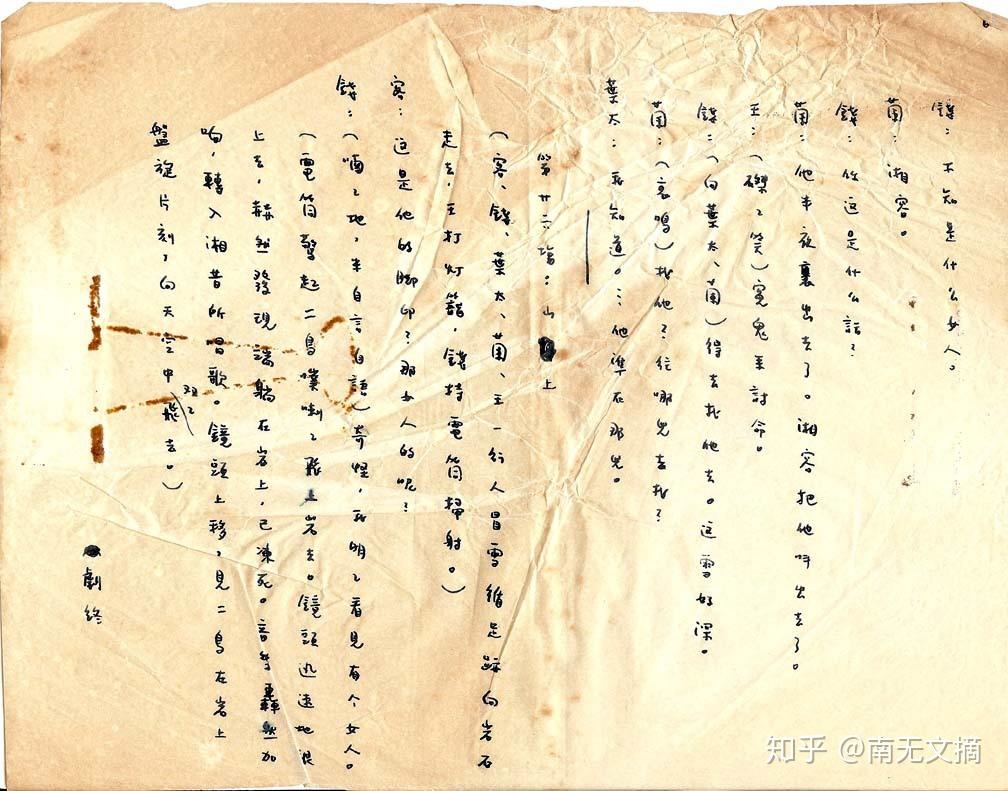 6
錢：不知是什么女人。
菌：湘容。
錢：你这是什么話？
菌：他半夜裏出去了。湘容把他呌出去了。
王：（磔〻笑）寃鬼来討命。
錢：（向葉太、菌）得去找他去。这雪好深。
菌：（哀鳴）找他？往哪兒去找？
葉太：我知道。…他準在那兒。
第廿六場：山上
（客、錢、葉太、菌、王一行人冒雪循足跡向岩石
走去，王打灯籠，錢持電筒掃射。）
客：这是他的脚印？那女人的呢？
錢：（喃〻地，半自言自語）奇怪，我明〻看見有个女人。
（電筒驚起二鳥噗喇〻飛上岩去。鏡頭迅速地跟
上去，赫然發現端躺在岩上，已凍死。音乐轟然加
响，轉入湘昔所唱歌。鏡頭上移，見二鳥在岩上
盤旋片刻，向天空中双〻飛去。）
劇終
知乎 @南无文摘